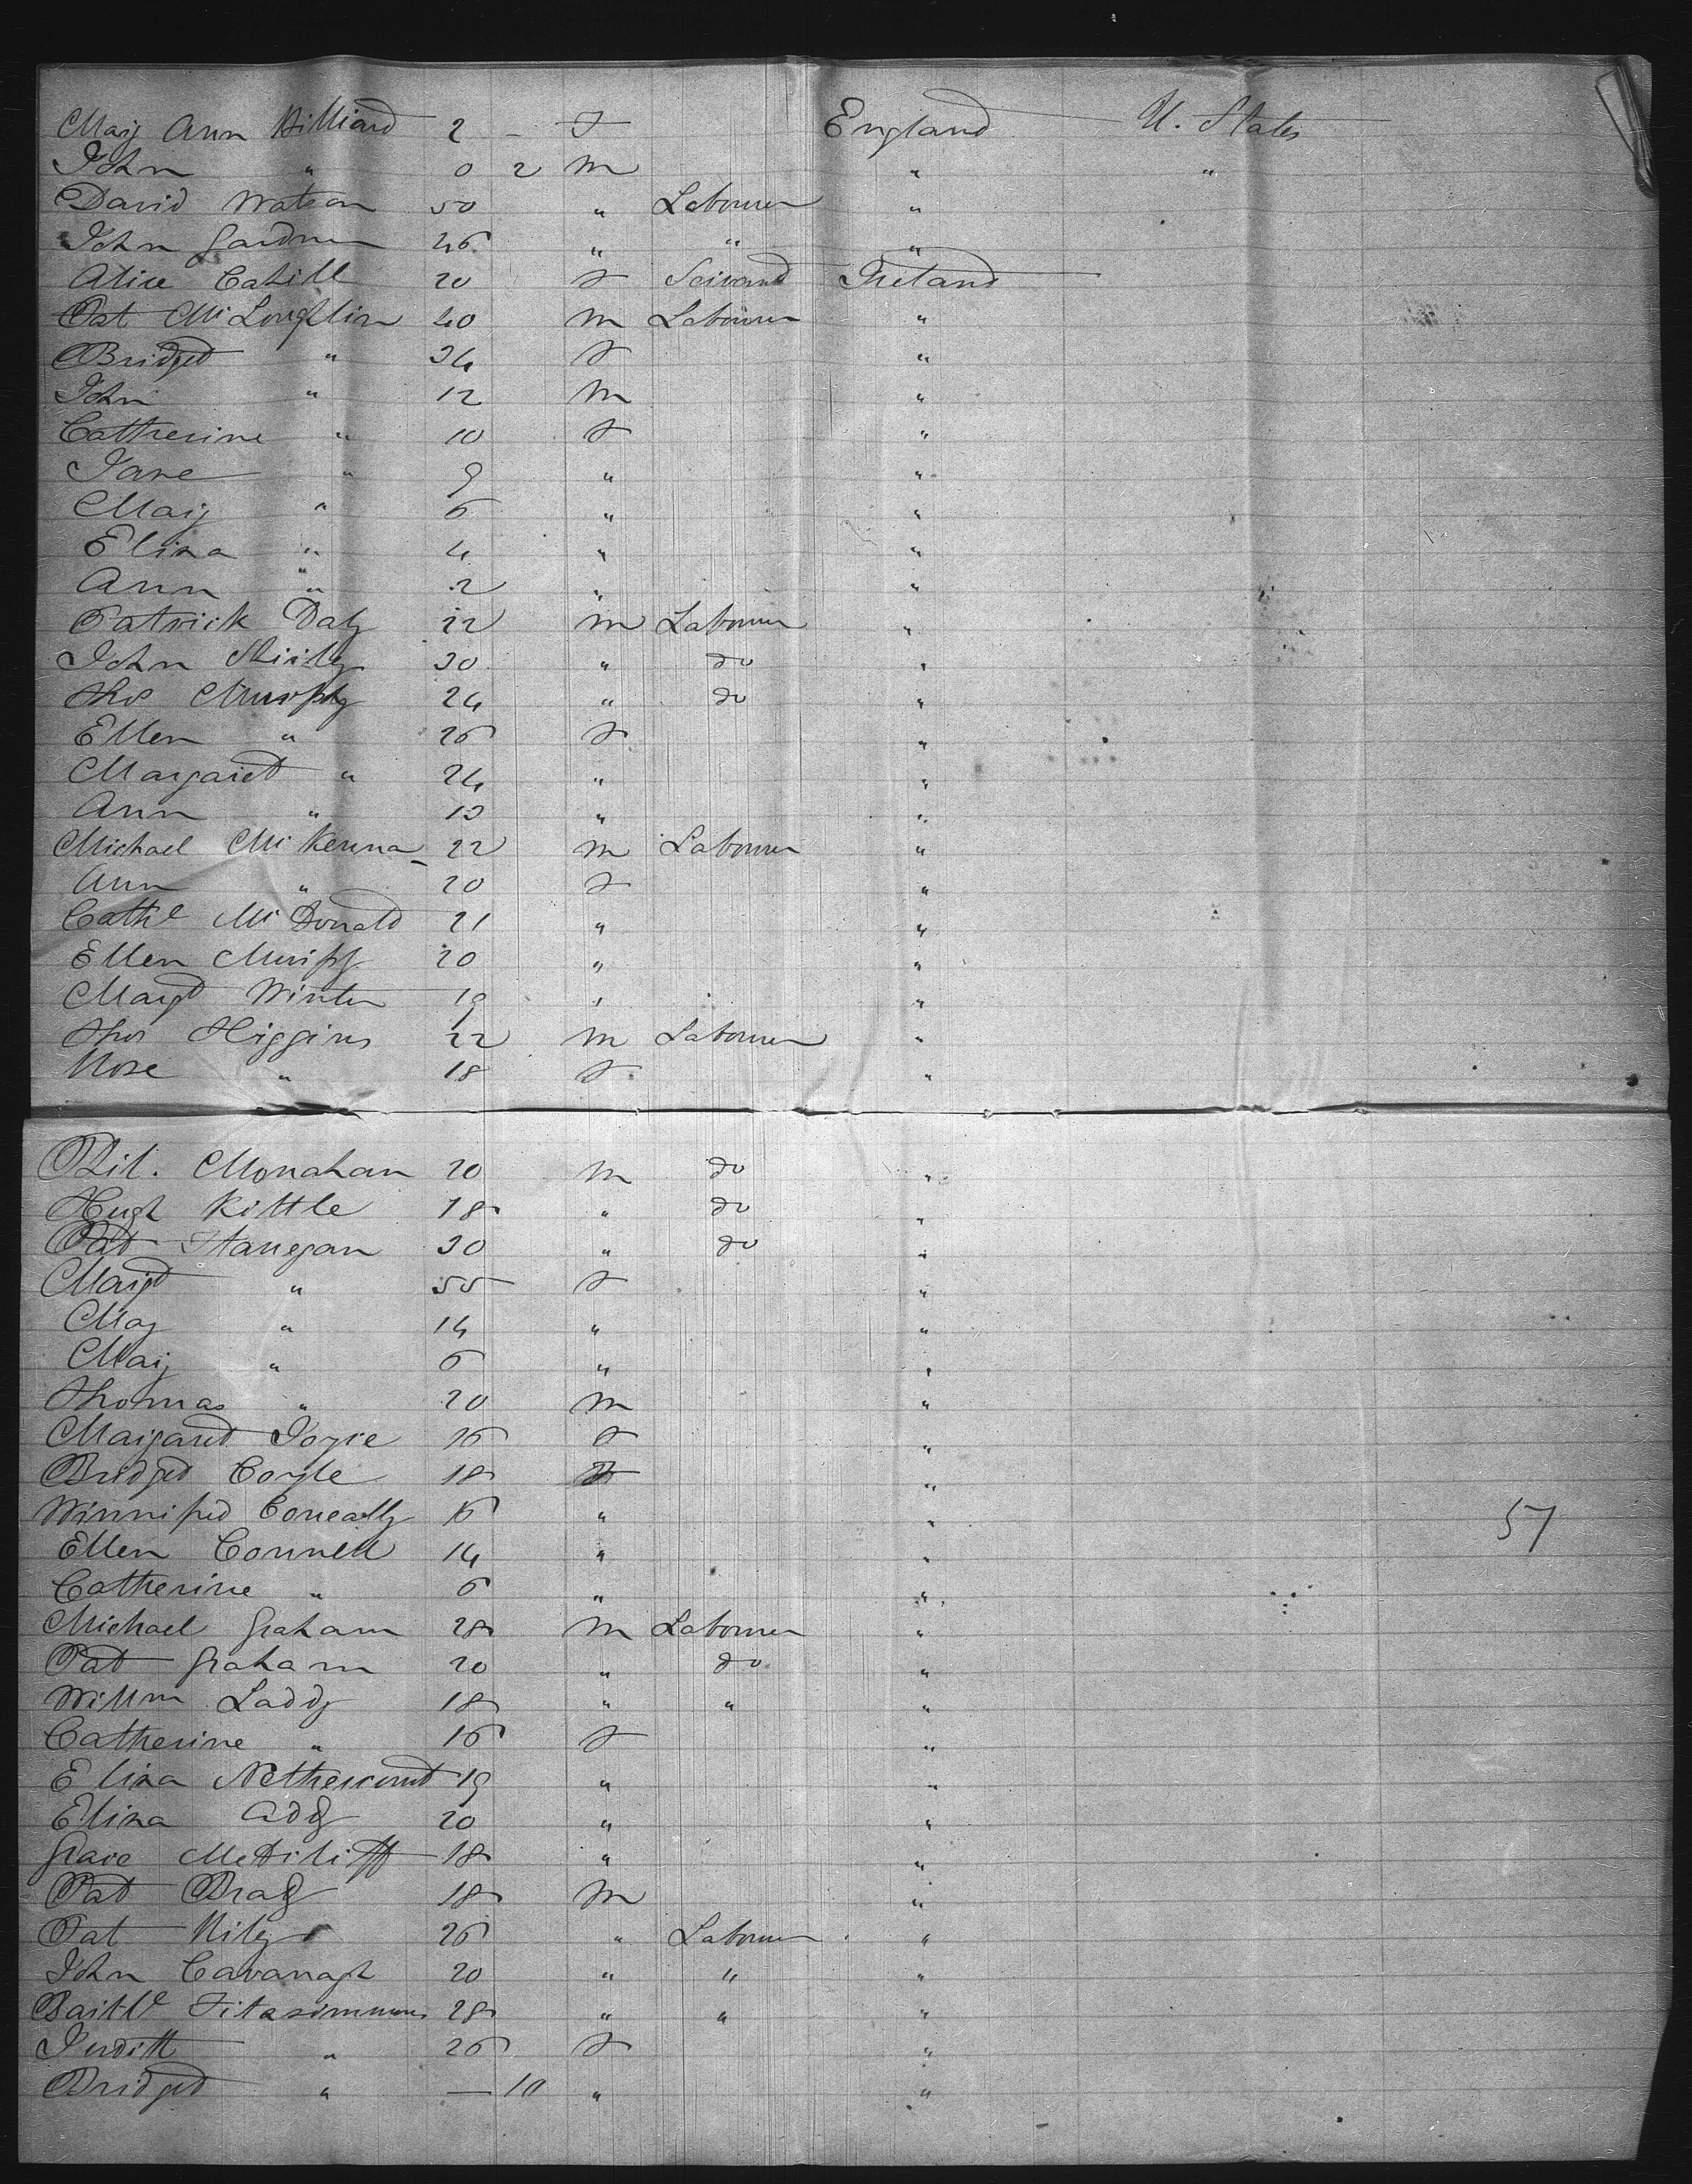 Mary Ann Hilliard 2 - F England U. States
John " 0 2 M " "
David Watson 50 " Labourer "
John Gardner 46 " " "
Alice Cahill 20 F Servant Ireland
Pat McLoughlin 40 M Labourer "
Bridget " 34 F "
John " 12 M "
Catherine " 10 F "
Jane " 9 " "
Mary " 6 " "
Eliza " 4 " "
Ann " 2 " "
Patrick Daly 22 M Labourer "
John 30 " do "
Thos Murphy 24 " do "
Ellen " 26 F "
Margaret " 24 " "
Ann " 13 " "
Michael McKenna 22 M Labourer "
Ann " 20 F "
Cathe McDonald 21 " "
Ellen Murphy 20 " "
Margt Winter 19 " "
Thos Higgins 22 M Labourer "
Rose " 18 F "
Phil. Monahan 20 M do "
Hugh Kittle 18 " do "
Pat Flanegan 30 " do "
Margt " 55 F "
May " 14 " "
Mary " 6 " "
Thomas " 20 M "
Margaret Joyce 16 F "
Bridget Coyle 18 F "
Winnifred Conealy 16 " "
Ellen Connell 14 " "
Catherine " 6 " "
Michael Graham 28 M Labourer "
Pat Graham 20 " do "
Willm Laddy 18 " " "
Catherine " 16 F "
Eliza 19 " "
Eliza Addy 20 " "
Grace 18 " "
Pat Brady 18 M "
Pat Rily 26 " Labourer "
John Cavanagh 20 " " "
Bartle Fitzsimmons 28 " " "
Judith " 26 F "
Bridget " — 10 " "
57